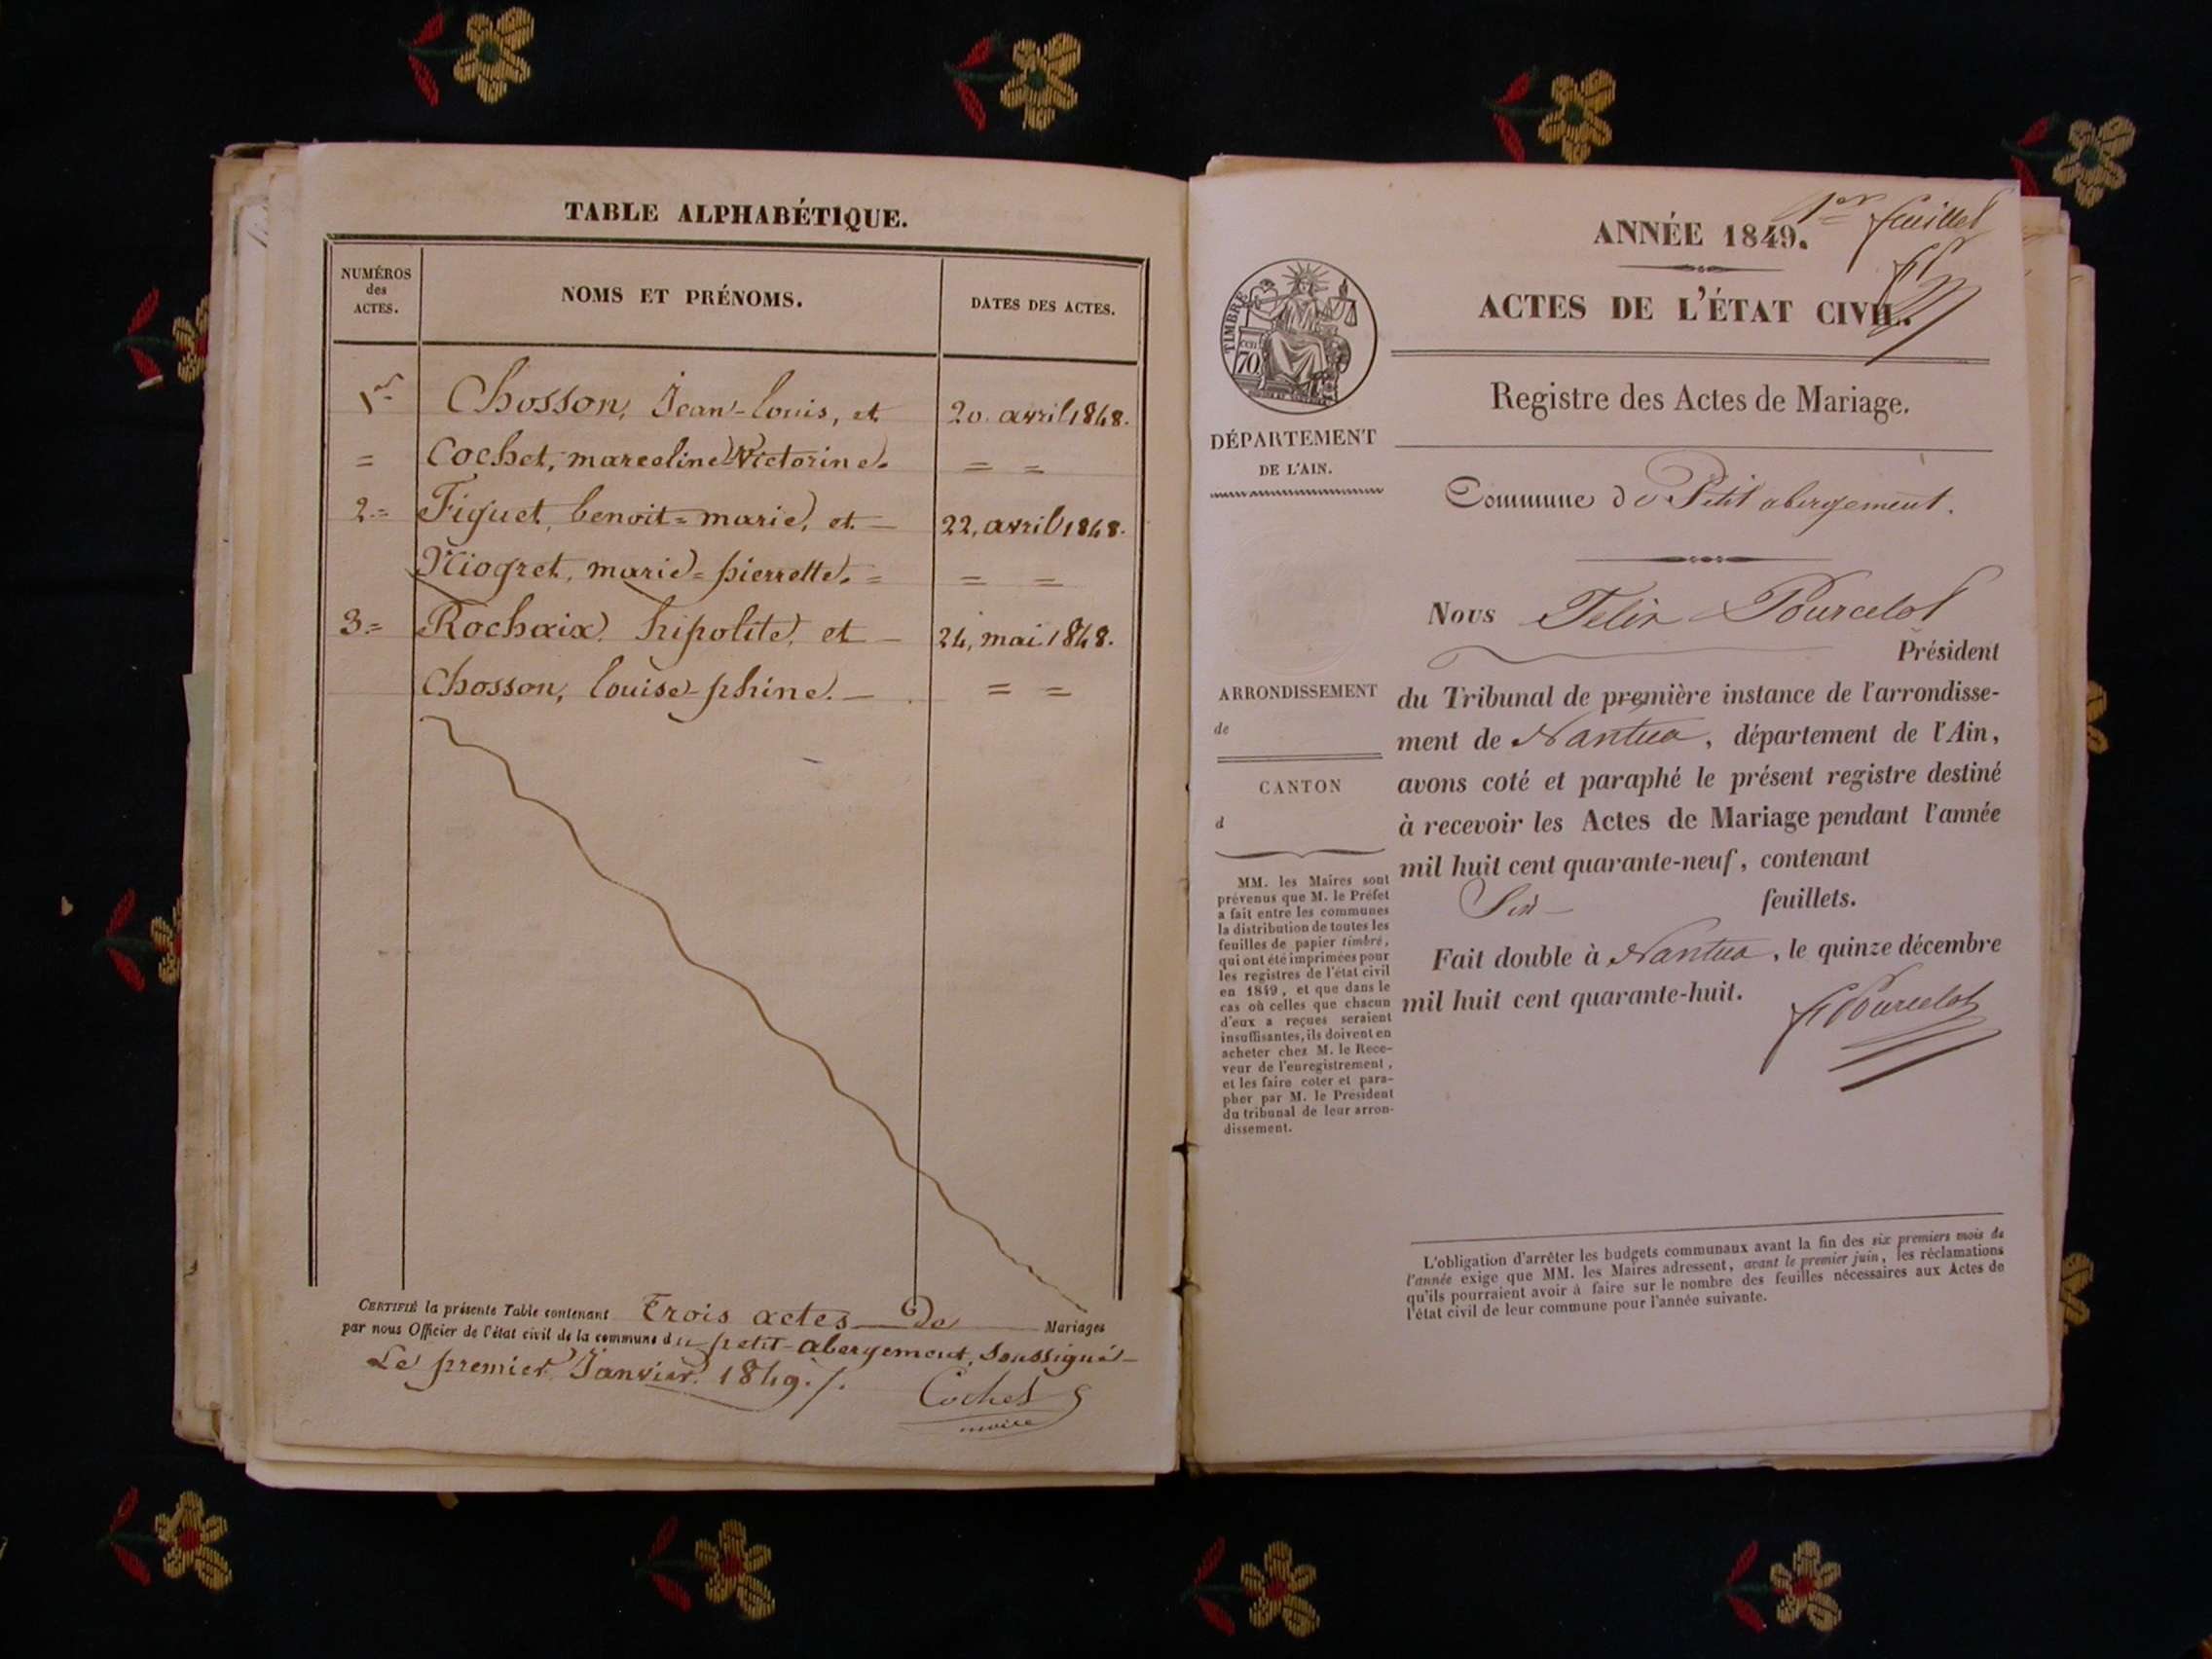 TABLE ALPHABÉTIQUE.
NUMÉROS
des
ACTES.
NOMS ET PRÉNOMS.
DATES DES ACTES.
1er Chosson, Jean-louis, et 20. avril 1848.
= Cochet, marceline Victorine. = =
2= Figuet, benoit=marie, et — 22, avril 1848.
Niogret, marie=pierrette. = = =
3= Rochaix, hipolite, et — 24, mai 1848.
Chosson, louise-phine. — = =
CERTIFIÉ la présente Table contenant Trois actes — De — Mariages
par nous Officier de l'état civil de la commune du petit-abergement, soussigné —
Le premier Janvier 1849./.
Cochet
maire
1er feuillet
ANNÉE 1849.
ACTES DE L'ÉTAT CIVIL.
TIMBRE
70 cen
DÉPARTEMENT
DE L'AIN.
Registre des Actes de Mariage.
Commune de Petit abergement.
Nous Felix Pourcelot
Président
du Tribunal de première instance de l'arrondisse-
ment de Nantua, département de l'Ain,
avons coté et paraphé le présent registre destiné
à recevoir les Actes de Mariage pendant l'année
mil huit cent quarante-neuf, contenant
Six — feuillets.
Fait double à Nantua, le quinze décembre
mil huit cent quarante-huit.
F Pourcelot
ARRONDISSEMENT
de
CANTON
d
MM. les Maires sont
prévenus que M. le Préfet
a fait entre les communes
la distribution de toutes les
feuilles de papier timbré,
qui ont été imprimées pour
les registres de l'état civil
en 1849, et que dans le
cas où celles que chacun
d'eux a reçues seraient
insuffisantes, ils doivent en
acheter chez M. le Rece-
veur de l'enregistrement,
et les faire coter et para-
pher par M. le President
du tribunal de leur arron-
dissement.
L'obligation d'arrêter les budgets communaux avant la fin des six premiers mois de
l'année exige que MM. les Maires adressent, avant le premier juin, les réclamations
qu'ils pourraient avoir à faire sur le nombre des feuilles nécessaires aux Actes de
l'état civil de leur commune pour l'année suivante.